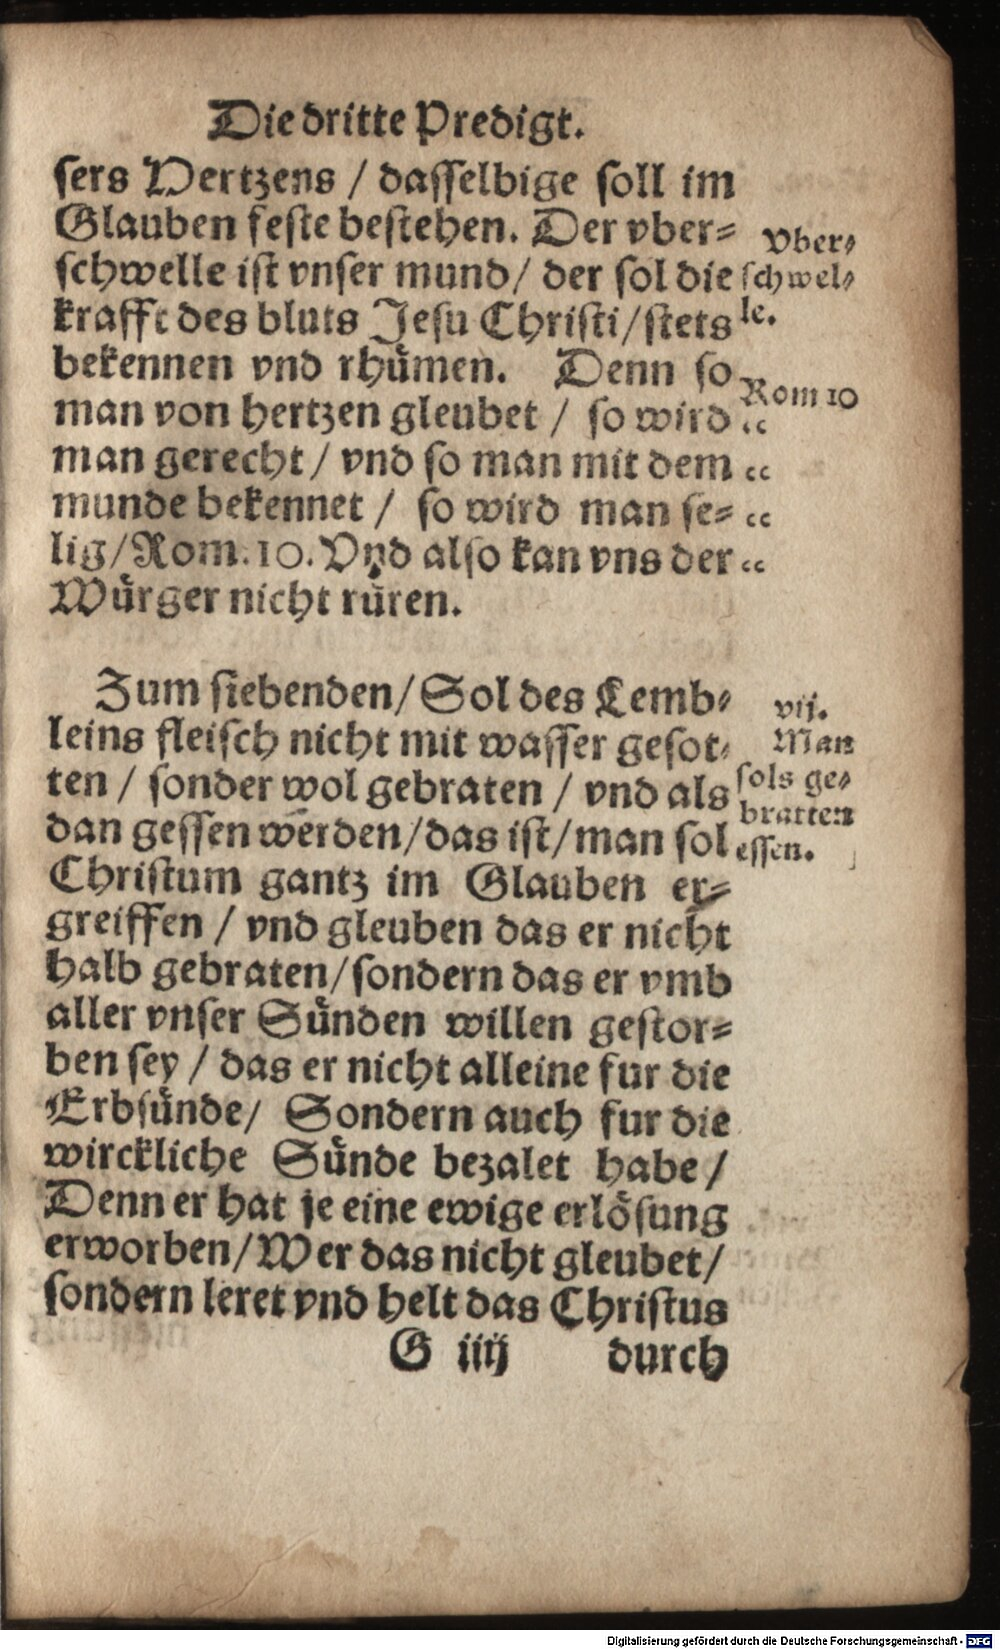 Die dritte Predigt.
sers Vertzens / dasselbige soll im
Glauben feste bestehen. Der vber=
schwelle ist vnser mund / der sol die
krafft des bluts Jesu Christi / stets
bekennen vnd rhümen. Denn so
man von hertzen gleubet / so wird
man gerecht / vnd so man mit dem
munde bekennet / so wird man se=
lig / Rom. 10. Vnd also kan vns der
Würger nicht rüren.
Vber=
schwel=
le.
Rom 10
Zum siebenden / Sol des Lemb=
leins fleisch nicht mit wasser gesot=
ten / sonder wol gebraten / vnd als
dan gessen werden / das ist / man sol
Christum gantz im Glauben er=
greiffen / vnd gleuben das er nicht
halb gebraten / sondern das er vmb
aller vnser Sünden willen gestor=
ben sey / das er nicht alleine fur die
Erbsünde / Sondern auch fur die
wirckliche Sünde bezalet habe /
Denn er hat je eine ewige erlösung
erworben / Wer das nicht gleubet /
sondern leret vnd helt das Christus
vij.
Man
sols ge=
bratten
essen.
G iiij durch
Digitalisierung gefördert durch die Deutsche Forschungsgemeinschaft - DFG